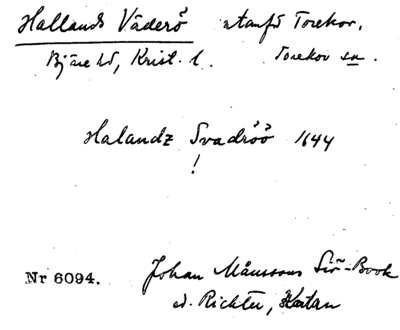 Hallands Väderö utanför Torekov.
Bjäre hd, Krist. l. Torekov sn.
Halandz Svadröö 1644
!
Johan Månssons Siö-Book
Nr 6094.
ed. Richter, Kartan